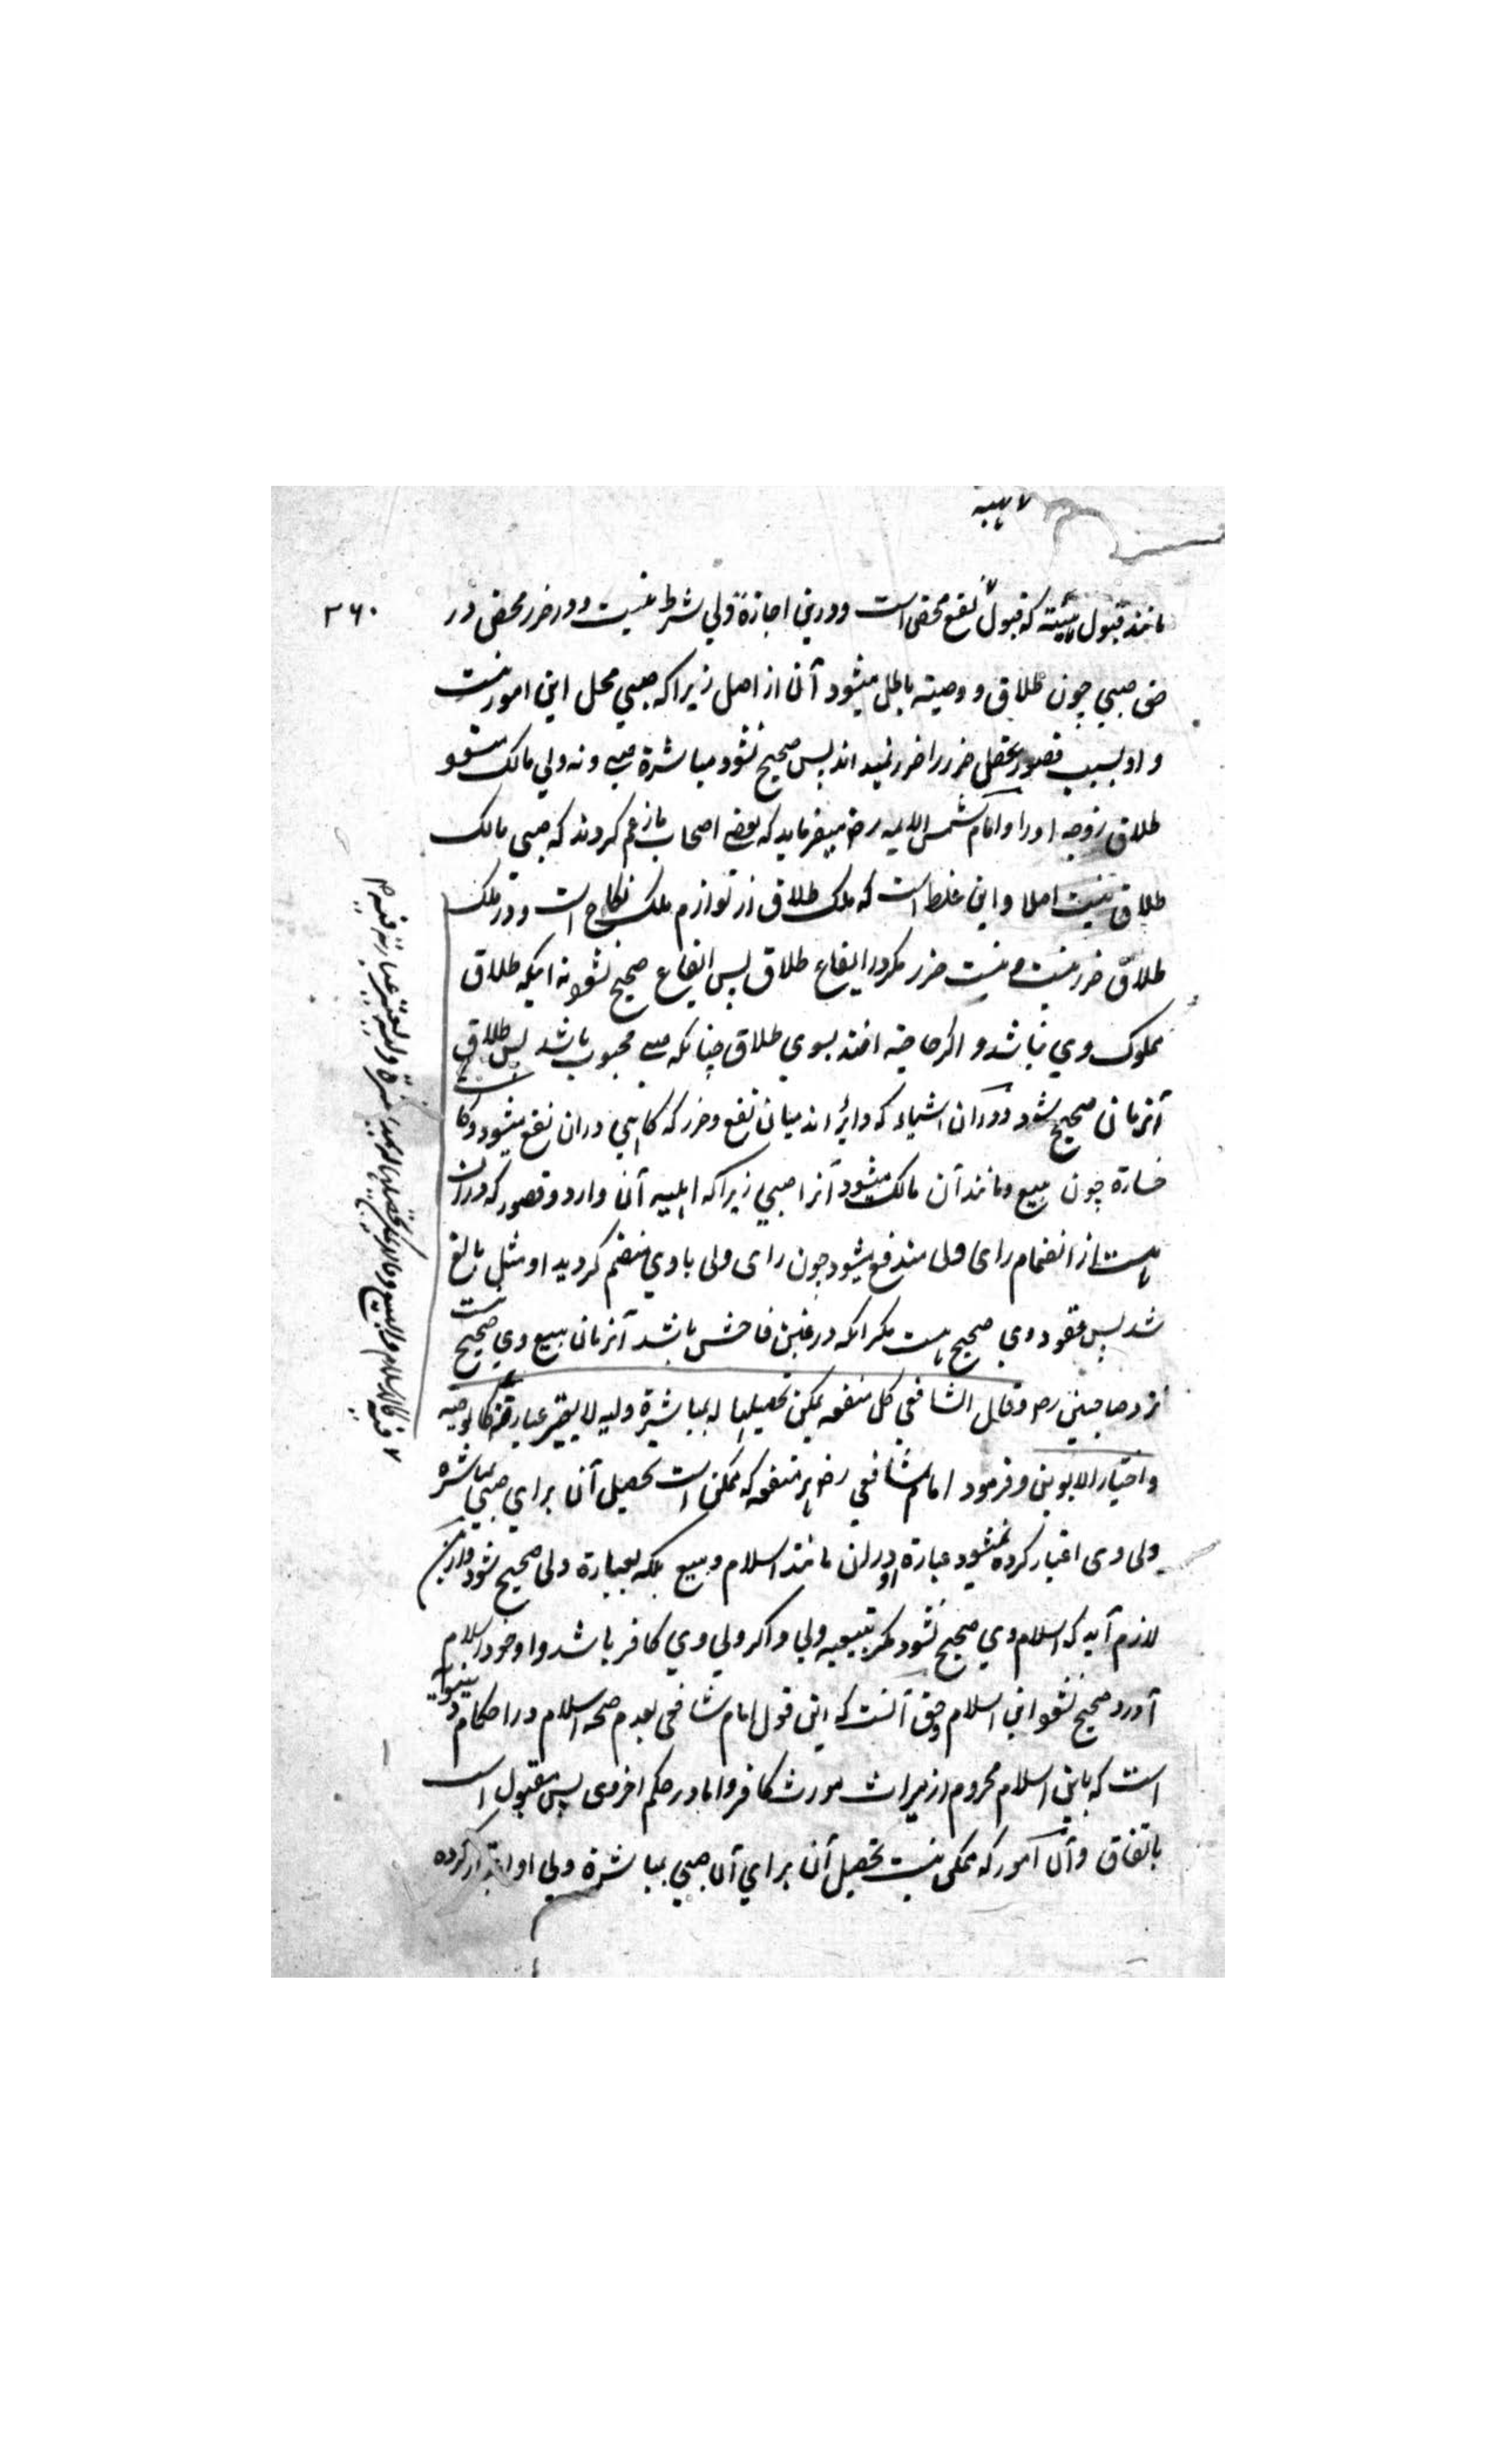 ۷ ہبہ
مانند قبول ہبہ که قبول نفع محض است و درین اجازة ولي شرط نیست و در ضرر محض در
۳۶۰
حق صبي چون طلاق و وصیته باطل میشود آن از اصل زیرا که صبي محل این امور نیست
و او بسبب قصور عقل ضرر را ضرر نمیداند پس صحیح نشود مباشرة صبی و نه ولي مالک شود
طلاق زوجه او را و امام شمس الایمه رض میفرماید که بعضی اصحاب ما زعم کردند که صبي مالک
طلاق نیست اصلا و این غلط است که ملک طلاق از لوازم ملک نکاح است و در ملک
طلاق ضرر نیست و نیست ضرر مگر در ایقاع طلاق پس ایقاع صحیح نشود نه اینکه طلاق
مملوک وي نباشد و اگر حاجة افتد بسوي طلاق چنانکه صبی مجبوب باشد پس طلاق
آنزمان صحیح شود و در آن اشیاء که دایر اند میان نفع و ضرر که گاهي دران نفع میشود و گاه
خسارة چون بیع و مانند آن مالک میشود آنرا صبي زیرا که اهلیه آن دارد و قصور که دران
است از انضمام رای ولی مندفع میشود چون رای ولی با وي منضم گردید او مثل بالغ
شد پس عقود وي صحیح است مگر آنکه در غبن فاحش باشد آنزمان بیع وي صحیح نیست
نزد صاحبین رح وقال الشافعي كل منفعه يمكن تحصيلها له بمباشرة وليه لا يعتبر عبارته فيه كالوصيه
واختيار الابوين و فرمود امام شافعي رض هر منفعه که ممکن است تحصیل آن براي صبي بمباشره
ولی وی اعتبار کرده نمیشود عبارة او دران مانند اسلام و بیع بلکه بعبارة ولی صحیح شود و ازین
لازم آید که اسلام وي صحیح نشود مگر بتبعیه ولي و اگر ولي وي کافر باشد و او خود اسلام
آورد صحیح نشود این اسلام و حق آنست که این قول امام شافعی بعدم صحه اسلام در احکام دنیویه
است که باین اسلام محروم از میراث مورث کافر و اما در حکم اخروی پس مقبول است
باتفاق و آن امور که ممکن نیست تحصیل آن براي آن صبي بمباشرة ولي او اعتبار کرده